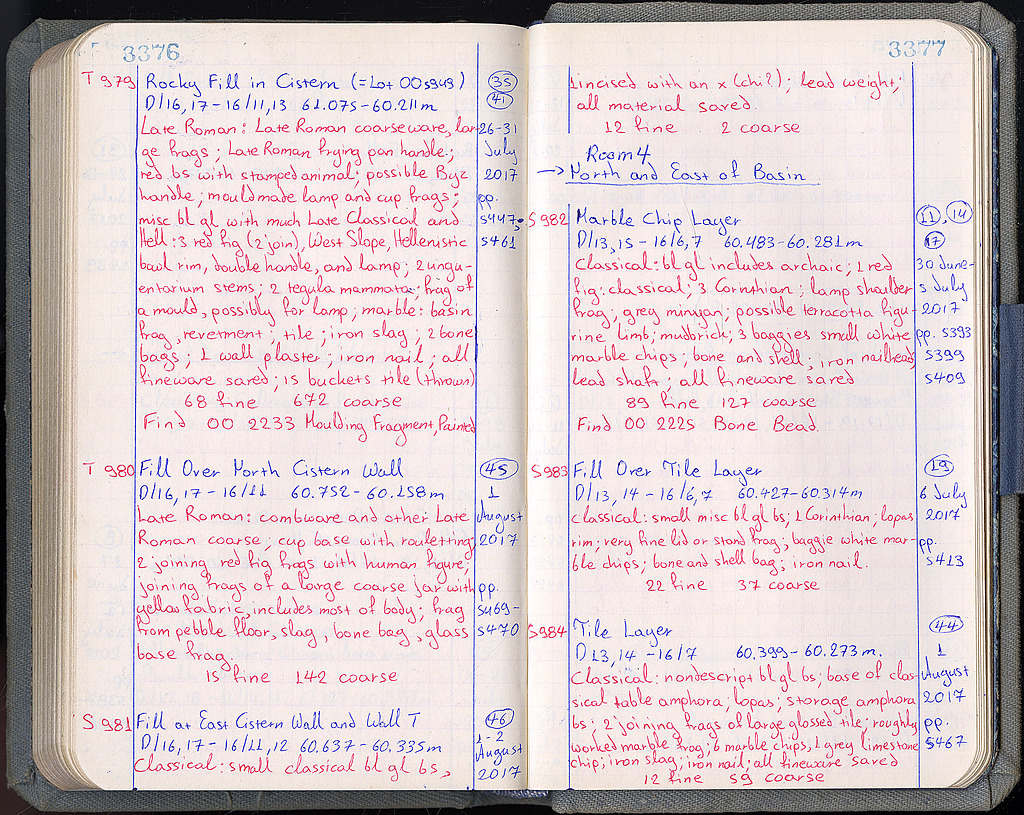 3376
T 979 Rocky Fill in Cistern (=Lot OOS948) 35
D/16, 17-16/11,13 61.075-60.211m 41
Late Roman: Late Roman coarseware, lar- 26-31
ge frags; Late Roman frying pan handle; July
red bs with stamped animal; possible Byz 2017
handle; mouldmade lamp and cup frags; pp.
misc bl gl with much Late Classical and 5447;
Hell: 3 red fig (2 join), West Slope, Hellenistic 5461
bowl rim, double handle, and lamp; 2 ungu-
entarium stems; 2 tegula mammata; frag of
a mould, possibly for lamp; marble: basin
frag, revetment; tile; iron slag; 2 bone
bags; 1 wall plaster; iron nail; all
fineware saved; 15 buckets tile (thrown)
68 fine 672 coarse
Find OO 2233 Moulding Fragment, Painted
T 980 Fill Over North Cistern Wall 45
D/16, 17-16/11 60.752-60.158m 1
Late Roman: combware and other Late August
Roman coarse; cup base with rouletting; 2017
2 joining red fig frags with human figure;
joining frags of a large coarse jar with pp.
yellow fabric, includes most of body; frag 5469-
from pebble floor, slag, bone bag, glass 5470
base frag.
15 fine 142 coarse
S 981 Fill at East Cistern Wall and Wall T 46
D/16, 17-16/11, 12 60.637-60.335m 1-2
August
Classical: small classical bl gl bs, 2017
3377
1 incised with an x (chi?); lead weight;
all material saved.
12 fine 2 coarse
Room 4
→ North and East of Basin
S 982 Marble Chip Layer 11, 14
D/13, 15-16/6, 7 60.483-60.281m 17
Classical: bl gl includes archaic; 1 red 30 June-
fig: classical; 3 Corinthian; lamp shoulder 5 July
frag; grey minyan; possible terracotta figu- 2017
rine, limb; mudbrick; 3 baggies small white pp. 5393
marble chips; bone and shell; iron nailhead; 5399
lead shaft; all fineware saved 5409
89 fine 127 coarse
Find OO 2225 Bone Bead.
S 983 Fill Over Tile Layer 19
D/13, 14-16/6, 7 60.427-60.314m 6 July
Classical: small misc bl gl bs; 1 Corinthian; lopas 2017
rim; very fine lid or stand frag; baggie white mar- pp.
ble chips; bone and shell bag; iron nail. 5413
22 fine 37 coarse
S 984 Tile Layer 44
D13, 14-16/7 60.399-60.273m. 1
Classical: nondescript bl gl bs; base of clas- August
sical table amphora; lopas; storage amphora 2017
bs; 2 joining frags of large glossed tile; roughly pp.
worked marble frag; 6 marble chips, 1 grey limestone 5467
chip; iron slag; iron nail; all fineware saved
12 fine 59 coarse